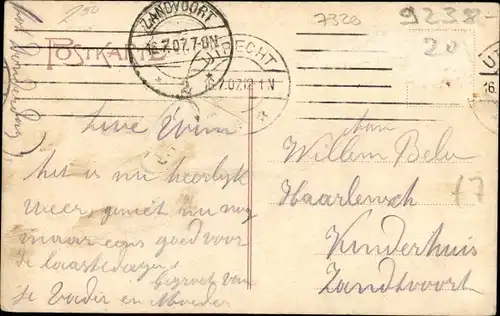 7320
9238-
20
POSTKARTE
ZANDVOORT
16.7.07.7-8N
2
UTRECHT
16.7.07.12-1N
Lieve Wim
het is nu heerlijk
weer, geniet nu nog
maar eens goed voor
de laaste dagen
gegroet van
je Vader en Moeder
Willem
Haarlemsch
Kinderhuis
Zandvoort
17